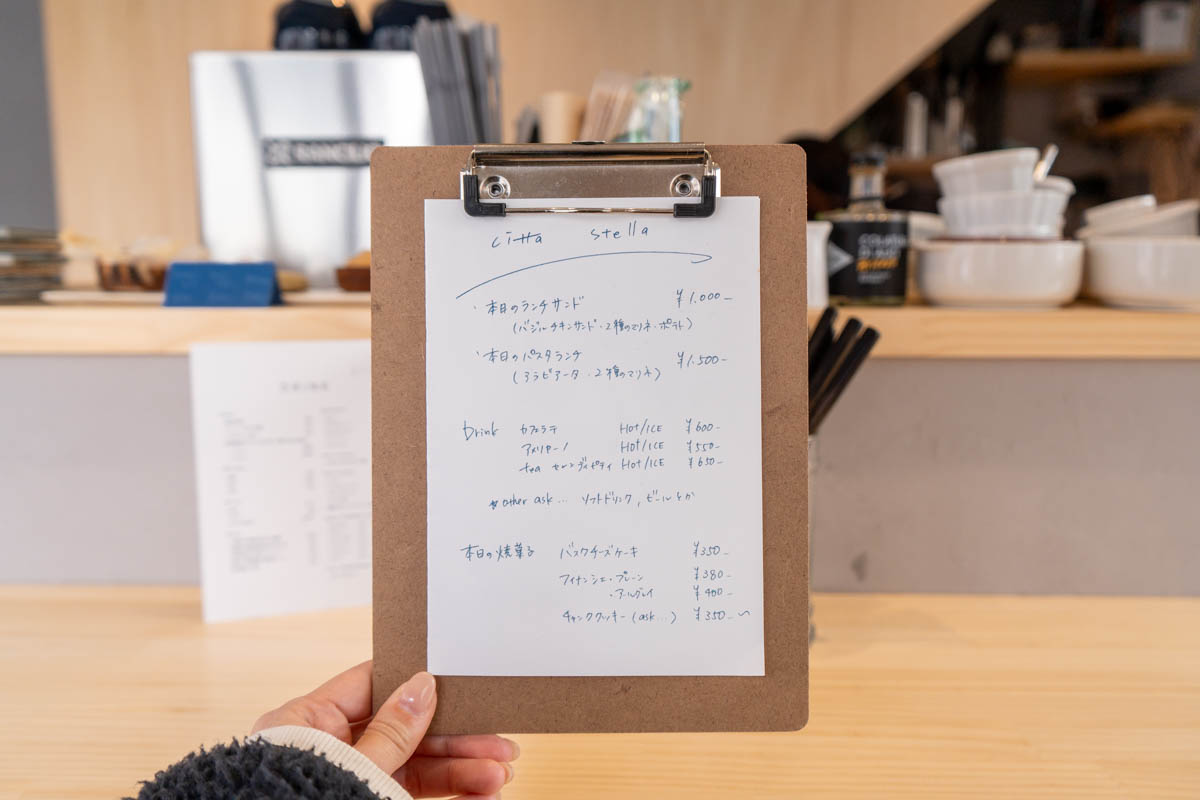 citta stella
・本日のランチサンド ¥1.000-
(バジルチキンサンド・2種のマリネ・ポテト)
・本日のパスタランチ ¥1.500-
(アラビアータ・2種のマリネ)
Drink カフェラテ Hot/ICE ¥600-
アメリカーノ Hot/ICE ¥550-
tea セレンディピティ Hot/ICE ¥650-
☆other ask... ソフトドリンク, ビールとか
本日の焼菓子 バスクチーズケーキ ¥350-
フィナンシェ・プレーン ¥380-
・アールグレイ ¥400-
チャンククッキー (ask...) ¥350-〜